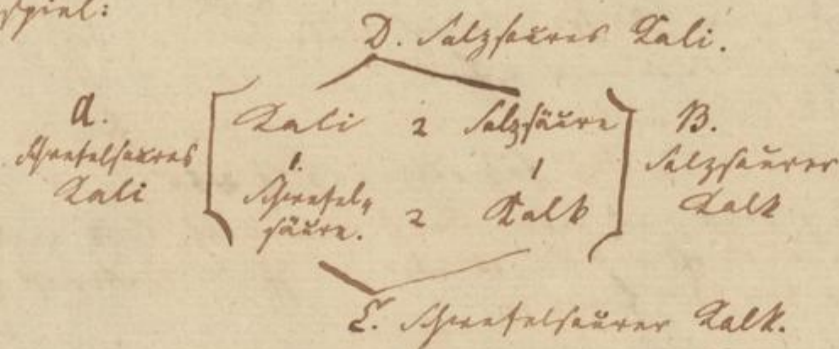 spiel:
D. Salzsaures Kali.
A.
schwefelsaures
Kali
Kali 2 Salzsäure
1. 1
Schwefel-
säure. 2 Kalk
B.
Salzsaurer
Kalk
C. Schwefelsaurer Kalk.